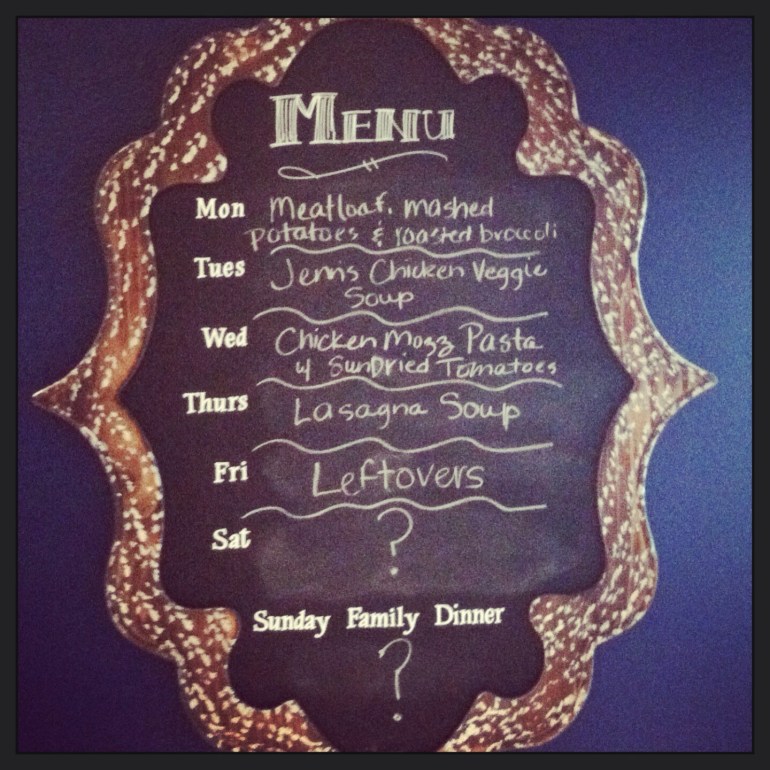 MENU
Mon Meatloaf, mashed
potatoes & roasted broccoli
Tues Jenns Chicken Veggie
Soup
Wed Chicken Mozz Pasta
w/ SunDried Tomatoes
Thurs Lasagna Soup
Fri Leftovers
Sat ?
Sunday Family Dinner
?